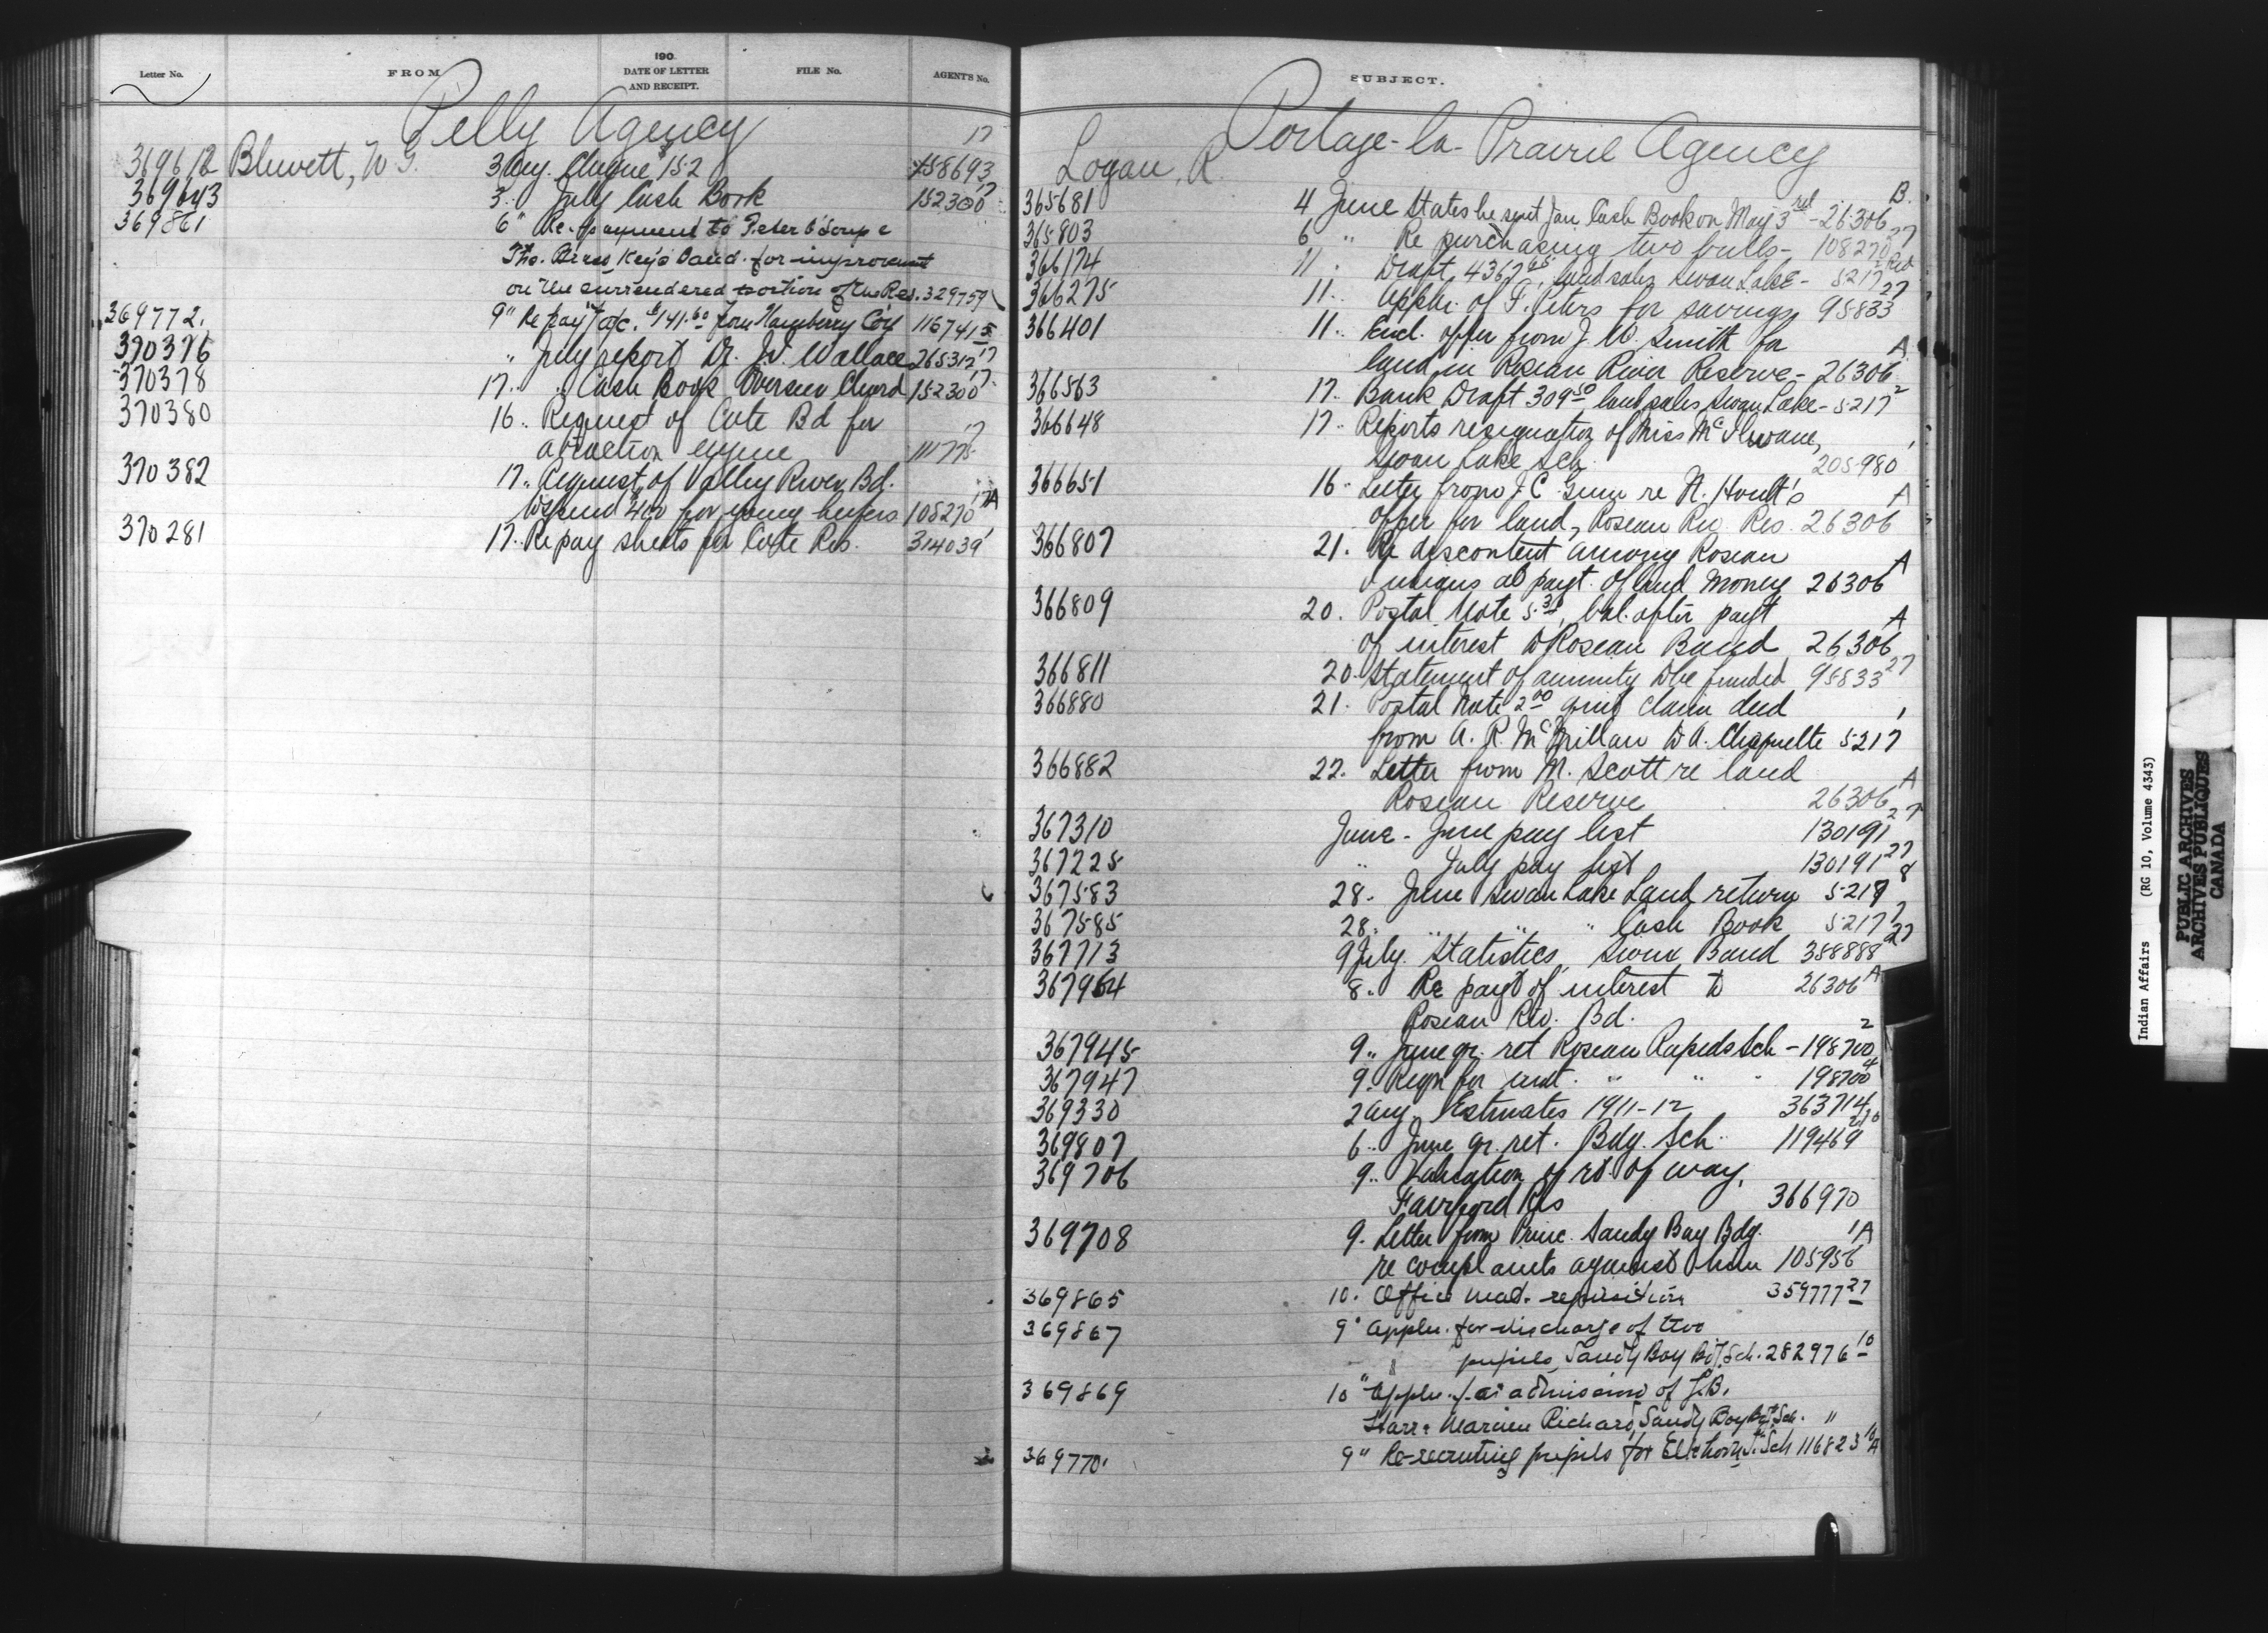 Letter No. FROM 190 DATE OF LETTER AND RECEIPT. FILE No. AGENT'S No.
Pelly Agency
369612 Blewett, W G. 3 Aug. Cheque 152 158693 17
369643 3 .. July Cash Book 152300 17
369861 6 " Re-payment to Peter O'Soup &
Tho. Brass, Key's Band. for improvement
on the surrendered portion of the Res. 329759
369772. 9 " Re pay't a/c. $141.60 from Hanberry Coy 116741 5
370376 " July report Dr. J.I. Wallace 265312 17
370378 17 .. " Cash Book Overseer Chard 152300 17
370380 16 .. Request of Cote Bd for
a traction engine 111775 17
370382 17 .. Request of Valley River Bd.
to spend $400 for young heifers 108270 17A
370281 17 .. Re pay sheets for Cote Res. 314039 1
SUBJECT.
Portage-la-Prairie Agency
Logan, R.
365681 4 June States he sent Jan Cash Book on May 3rd - 26306 B.
365803 6 " Re purchasing two bulls - 108270 27
366174 11 . Draft 4367 65 land sales Swan Lake - 5217 2
366275 11 .. Appln. of F. Peters for savings 95833 27
366401 11 .. Encl. offer from J. W. Smith for
land in Rosean River Reserve - 26306 A
366563 17 .. Bank Draft 309 50 land sales Swan Lake - 5217 2
366648 17 .. Reports resignation of Miss McIlwaine,
Swan Lake Sch. 205980 1
366651 16 .. Letter from J. C. Ginn re N. Hoult's
offer for land, Rosean Riv. Res. 26306 A
366807 21 . Re discontent among Rosean
Indians at payt. of land money 26306 A
366809 20 . Postal Note 5.30, bal. after payt
of interest to Rosean Band 26306 A
366811 20 . Statement of annuity to be funded 95833 27
366880 21 . Postal Note 2 00 quit claim deed
from A. R. McMillan to A. Chepuette 5217 1
366882 22 . Letter from M. Scott re land
Rosean Reserve 26306 A
367310 June - June pay list 130191 27
367225 " July pay list 130191 27
367583 28 . June Swan Lake Land return 5217 8
367585 28 . " " " Cash Book 5217 1
367713 9 July. Statistics, Sioux Band 358888 27
367964 8 .. Re payt of interest to 26306 A
Rosean Riv. Bd.
367945 9 .. June qr. ret Rosean Rapids Sch - 198700 2
367947 9 . Reqn for mat. " " " 198700 4
369330 2 Aug. Estimates 1911-12 363714
369807 6 .. June qr. ret. Bdg. Sch. 119469
369706 9 .. Valuation of rt. of way,
Fairford Res 366970
369708 9 . Letter from Princ. Sandy Bay Bdg.
re complaints against him 105956 1A
369865 10 . Office mat. requisition 359777 27
369867 9 " Appln. for discharge of two
pupils, Sandy Bay Bdg. Sch. 282976 10
369869 10 " Appln. for admission of J.B.
Starr & Marien Richard, Sandy Bay Bdg. Sch. "
369770. 9 " Re-recruiting pupils for Elkhorn I. Sch 116823 10A
Indian Affairs (RG 10, Volume 4343)
PUBLIC ARCHIVES
ARCHIVES PUBLIQUES
CANADA